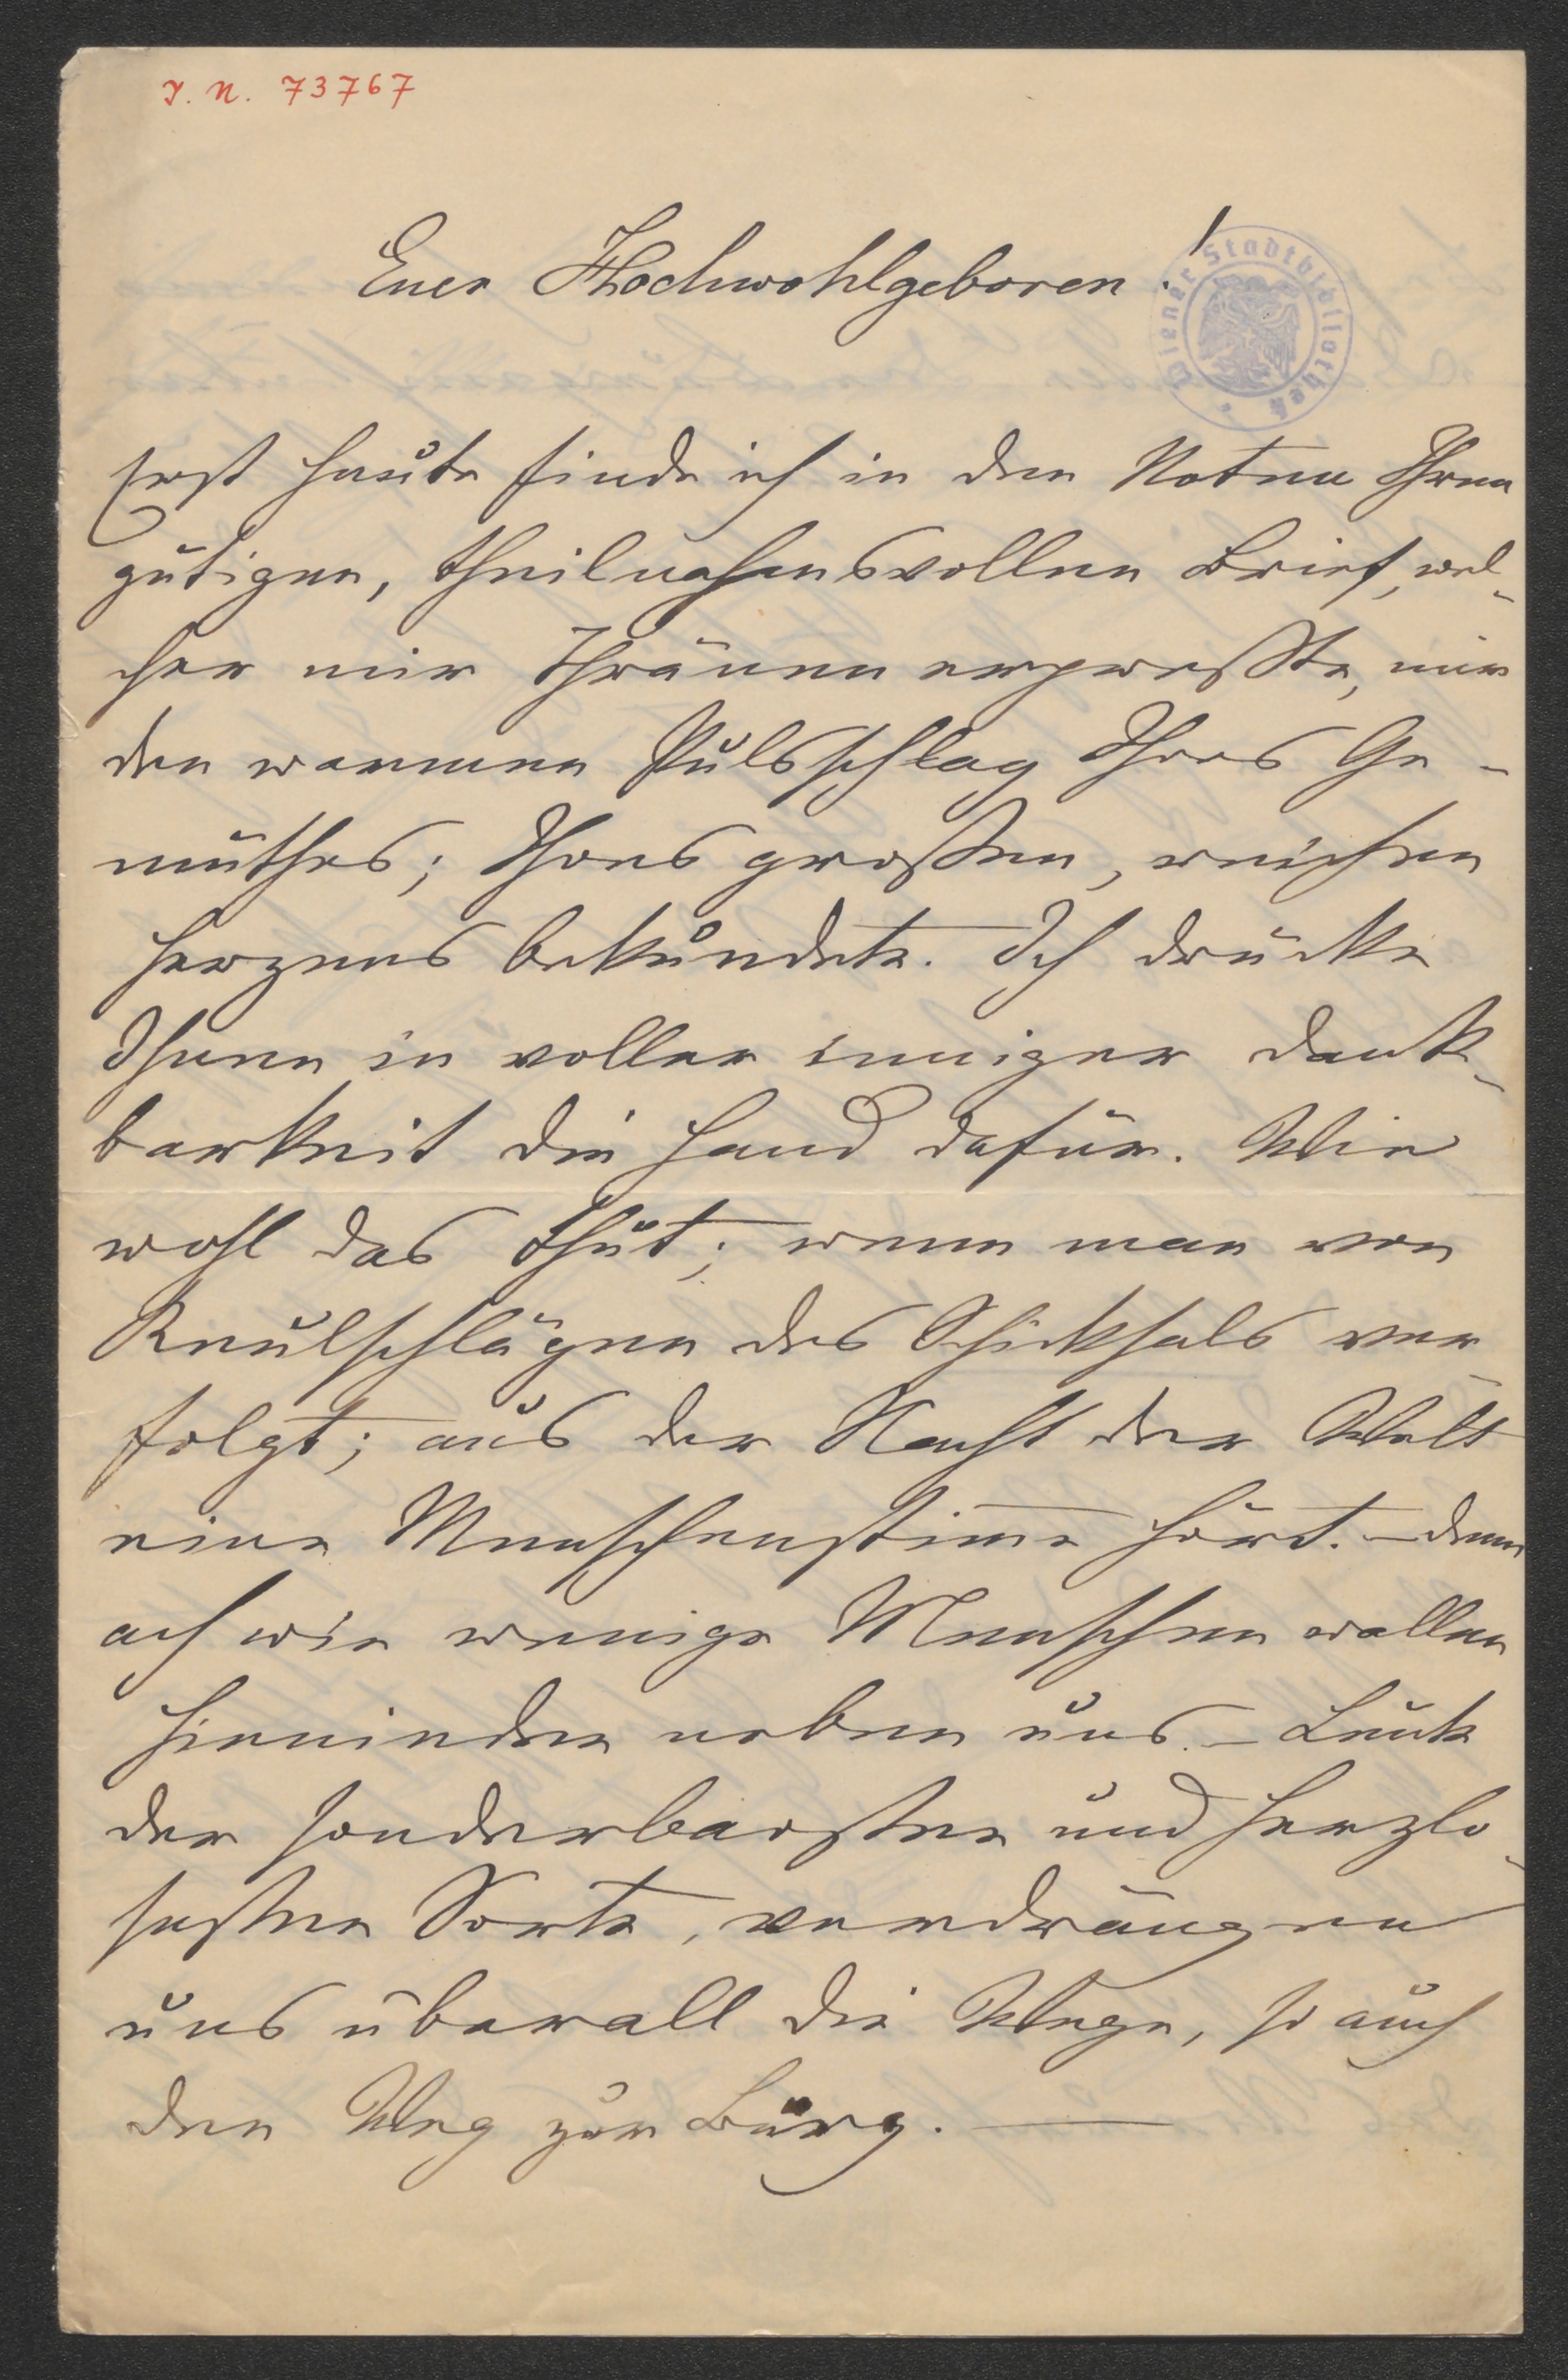 I. N. 73767
Euer Hochwohlgeboren!
Wiener Stadtbibliothek
Erst heute finde ich in den Noten Ihren
gütigen, theilnahmsvollen Brief, wel-
cher mir Thränen erpresste, mir
den warmen Pulsschlag Ihres Ge-
müthes; Ihres großen, reichen
Herzens bekundete. Ich drücke
Ihnen in voller inniger Dank-
barkeit die Hand dafür. Wie
wohl das thut; wenn man von
Keulschlägen des Schicksals ver-
folgt; aus der Nacht der Welt
eine Menschenstimme hört. – denn
ach wie wenige Menschen wallen
hienieden neben uns. – Leute
der sonderbarsten und herzlo-
sesten Sorte, verdrängen
uns überall die Wege, so auch
den Weg zur Burg. —